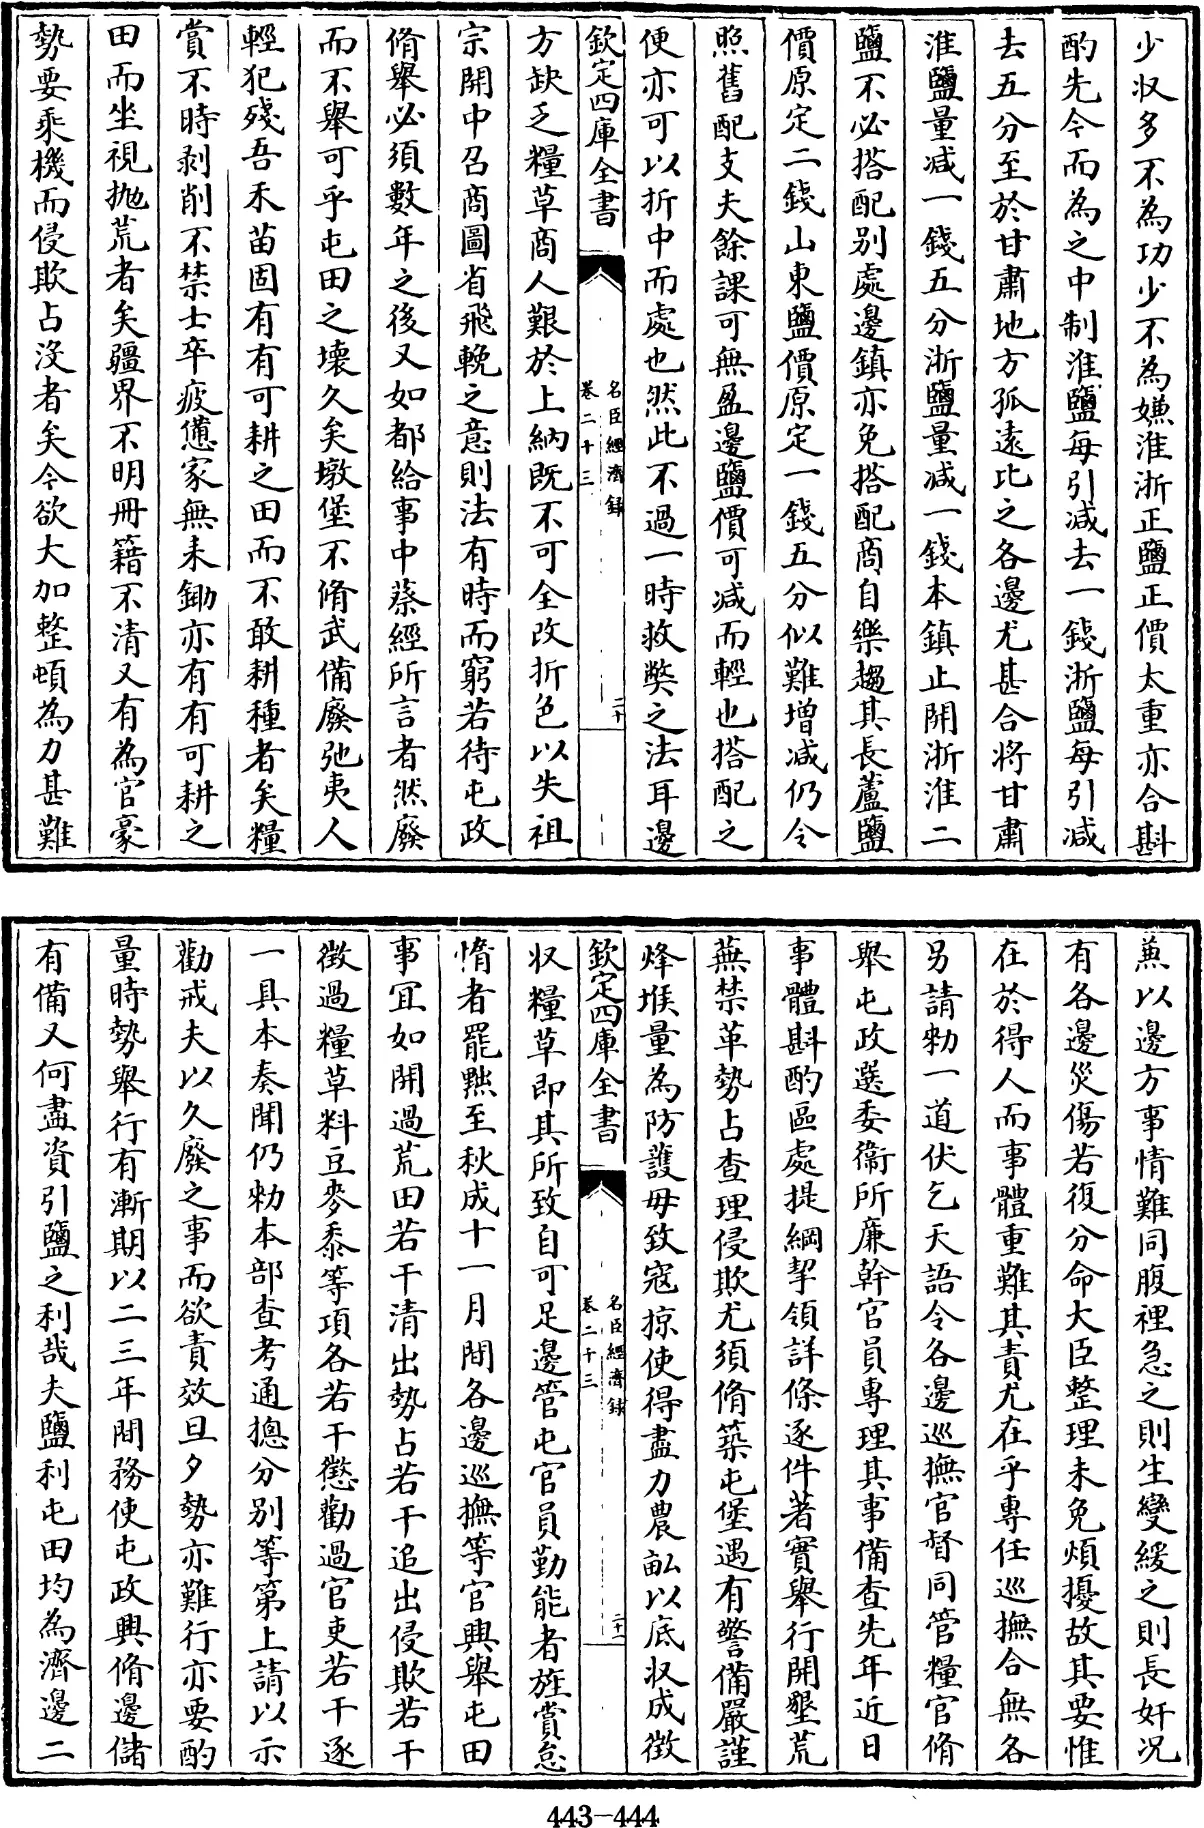 少収多不為功少不為嫌淮浙正鹽正價太重亦合斟
酌先今而為之中制淮鹽每引減去一錢浙鹽每引減
去五分至於甘肅地方孤遠比之各邊尤甚合將甘肅
淮鹽量減一錢五分浙鹽量減一錢本鎮止開浙淮二
鹽不必搭配别處邊鎮亦免搭配商自樂趨其長蘆鹽
價原定二錢山東鹽價原定一錢五分似難増減仍令
照舊配支夫餘課可無盈邊鹽價可減而輕也搭配之
便亦可以折中而處也然此不過一時救獘之法耳邊
欽定四庫全書
名臣經濟録
卷二十三
二十
方缺乏糧草商人艱於上納既不可全改折色以失祖
宗開中召商圖省飛輓之意則法有時而窮若待屯政
脩舉必須數年之後又如都給事中蔡經所言者然廢
而不舉可乎屯田之壞久矣墩堡不脩武備廢弛夷人
輕犯殘吾禾苗固有有可耕之田而不敢耕種者矣糧
賞不時剥削不禁士卒疲憊家無耒鋤亦有有可耕之
田而坐視抛荒者矣疆界不明冊籍不清又有為官豪
勢要乘機而侵欺占沒者矣今欲大加整頓為力甚難
蕪以邊方事情難同腹裡急之則生變緩之則長奸况
有各邊災傷若復分命大臣整理未免煩擾故其要惟
在於得人而事體重難其責尤在乎專任巡撫合無各
另請勅一道伏乞天語令各邊巡撫官督同管糧官脩
舉屯政選委衞所廉幹官員專理其事備查先年近日
事體斟酌區處提綱挈領詳條逐件著實舉行開墾荒
蕪禁革勢占查理侵欺尤須脩築屯堡遇有警備嚴謹
烽堠量為防護毋致寇掠使得盡力農畝以底収成徴
欽定四庫全書
名臣經濟録
卷二十三
二十一
収糧草即其所致自可足邊管屯官員勤能者旌賞怠
惰者罷黜至秋成十一月間各邊巡撫等官興舉屯田
事宜如開過荒田若干清出勢占若干追出侵欺若干
徴過糧草料豆麥黍等項各若干懲勸過官吏若干逐
一具本奏聞仍勅本部查考通摠分别等第上請以示
勸戒夫以久廢之事而欲責效旦夕勢亦難行亦要酌
量時勢舉行有漸期以二三年間務使屯政興脩邊儲
有備又何盡資引鹽之利哉夫鹽利屯田均為濟邊二
443-444